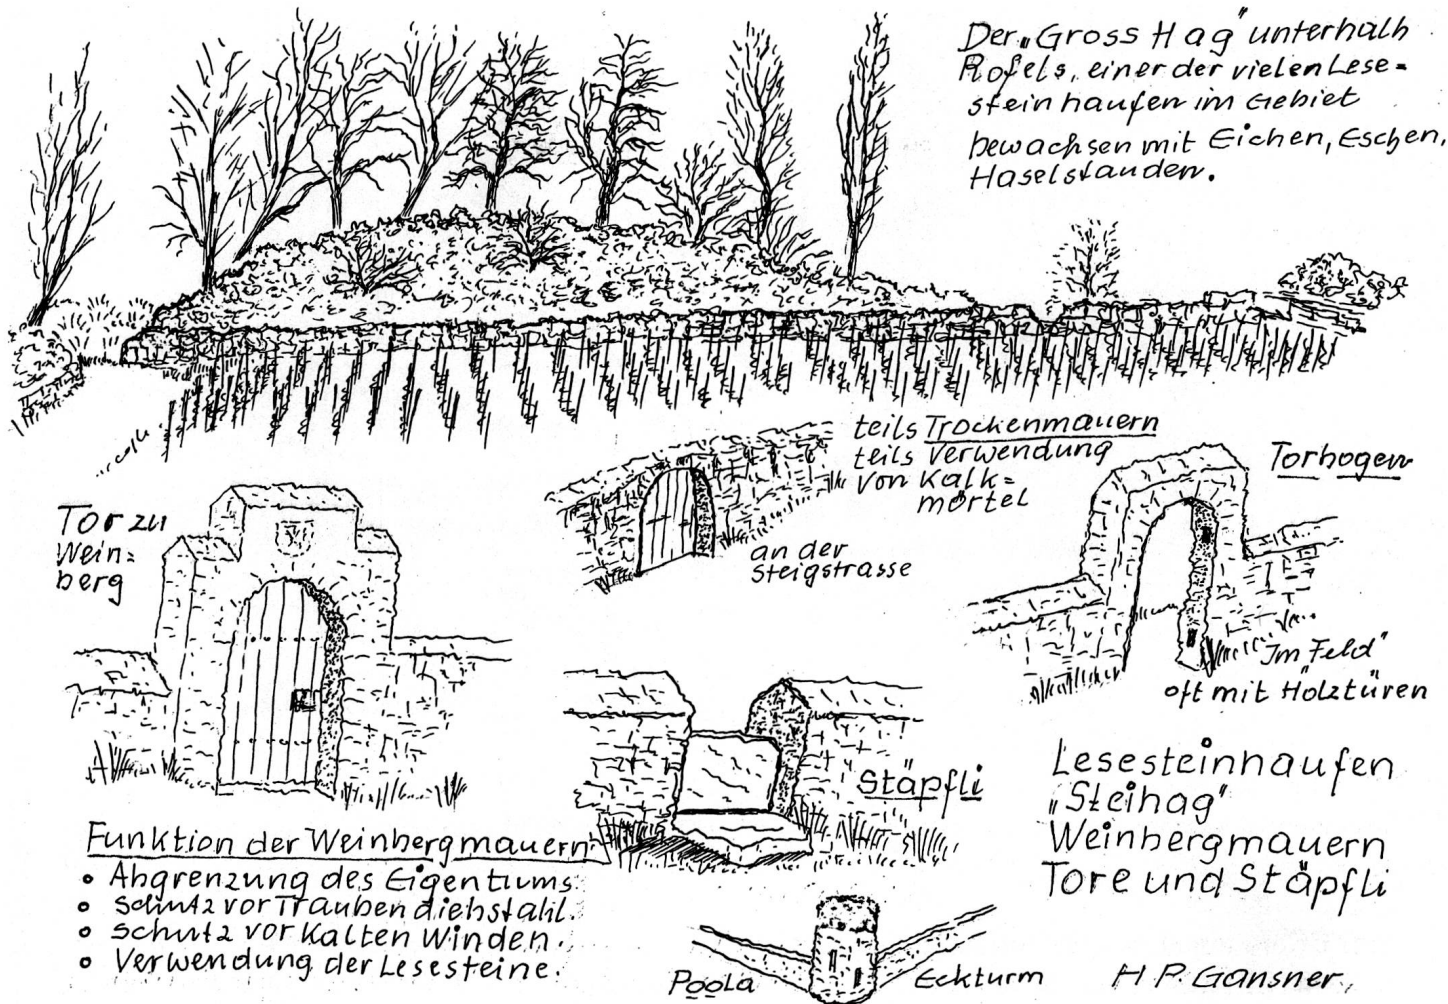 Der „Gross Hag" unterhalb
Rofels, einer der vielen Lese=
steinhaufen im Gebiet
bewachsen mit Eichen, Eschen,
Haselstauden.
teils Trockenmauern
teils Verwendung
von Kalk=
mörtel
Torbogen
Tor zu
Wein=
berg
an der
Steigstrasse
„Im Feld"
oft mit Holztüren
Stäpfli
Lesesteinhaufen
„Steihag"
Weinbergmauern
Tore und Stäpfli
Funktion der Weinbergmauern:
• Abgrenzung des Eigentums.
• Schutz vor Traubendiebstahl.
• Schutz vor Kalten Winden.
• Verwendung der Lesesteine.
Poola
Eckturm
H P. Gansner.